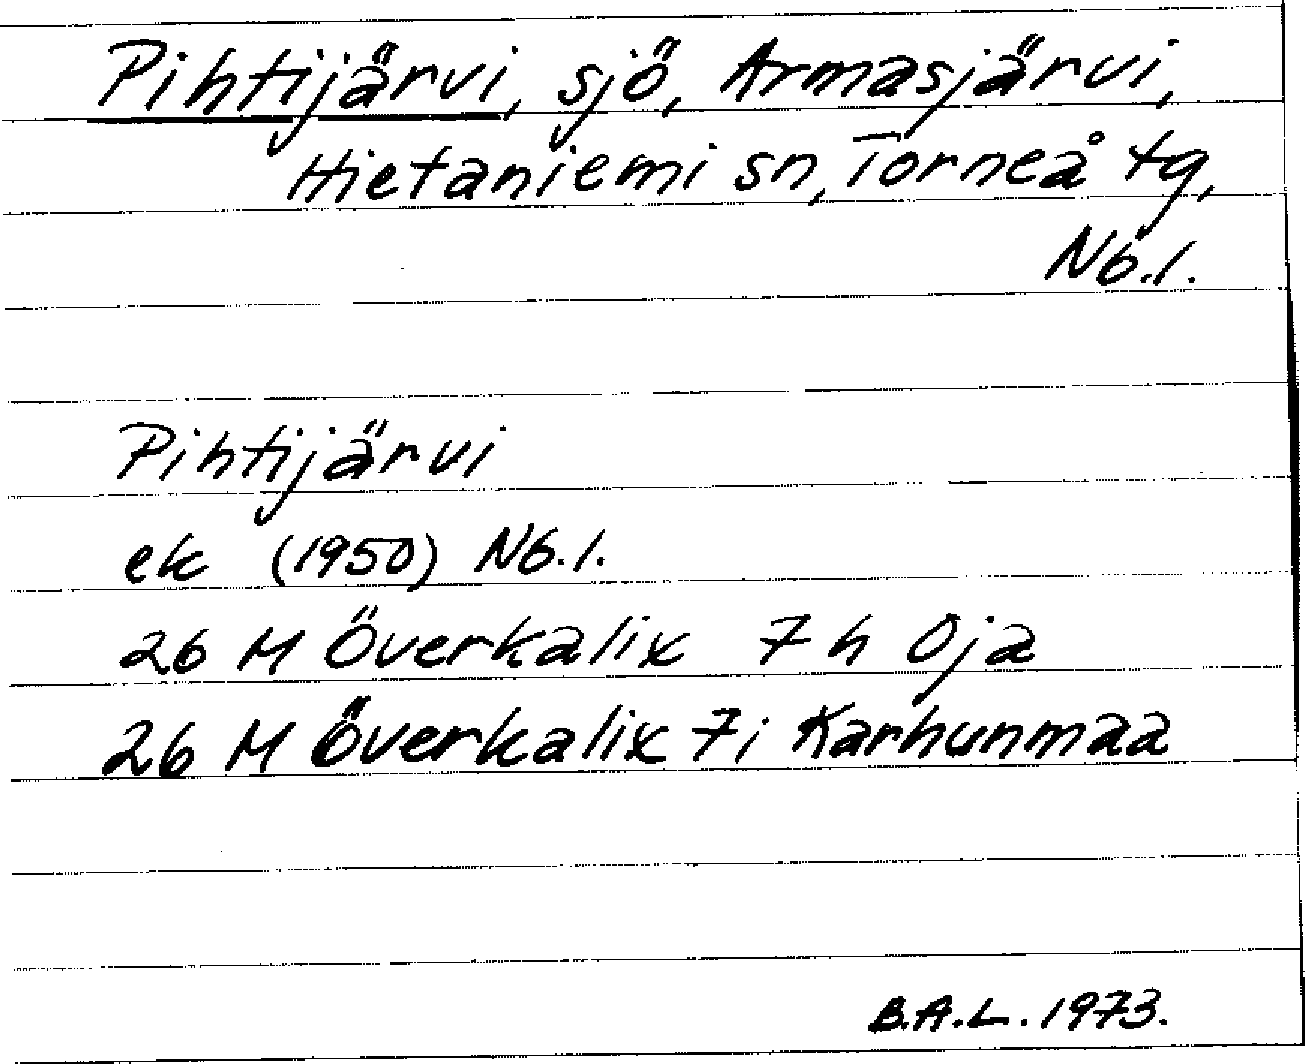 Pihtijärvi, sjö, Armasjärvi,
Hietaniemi sn, Torneå tg,
Nb.l.
Pihtijärvi
ek (1950) Nb.l.
26 M Överkalix 7 h Oja
26 M Överkalix 7i Karhunmaa
B.A.L. 1973.